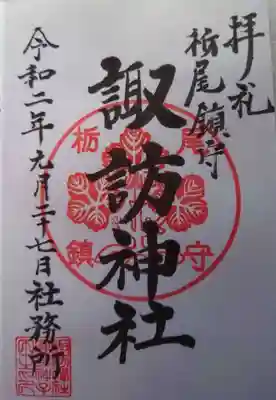 拝礼
栃尾鎮守
諏訪神社
栃尾
鎮守
令和二年元月二十七日
社務所